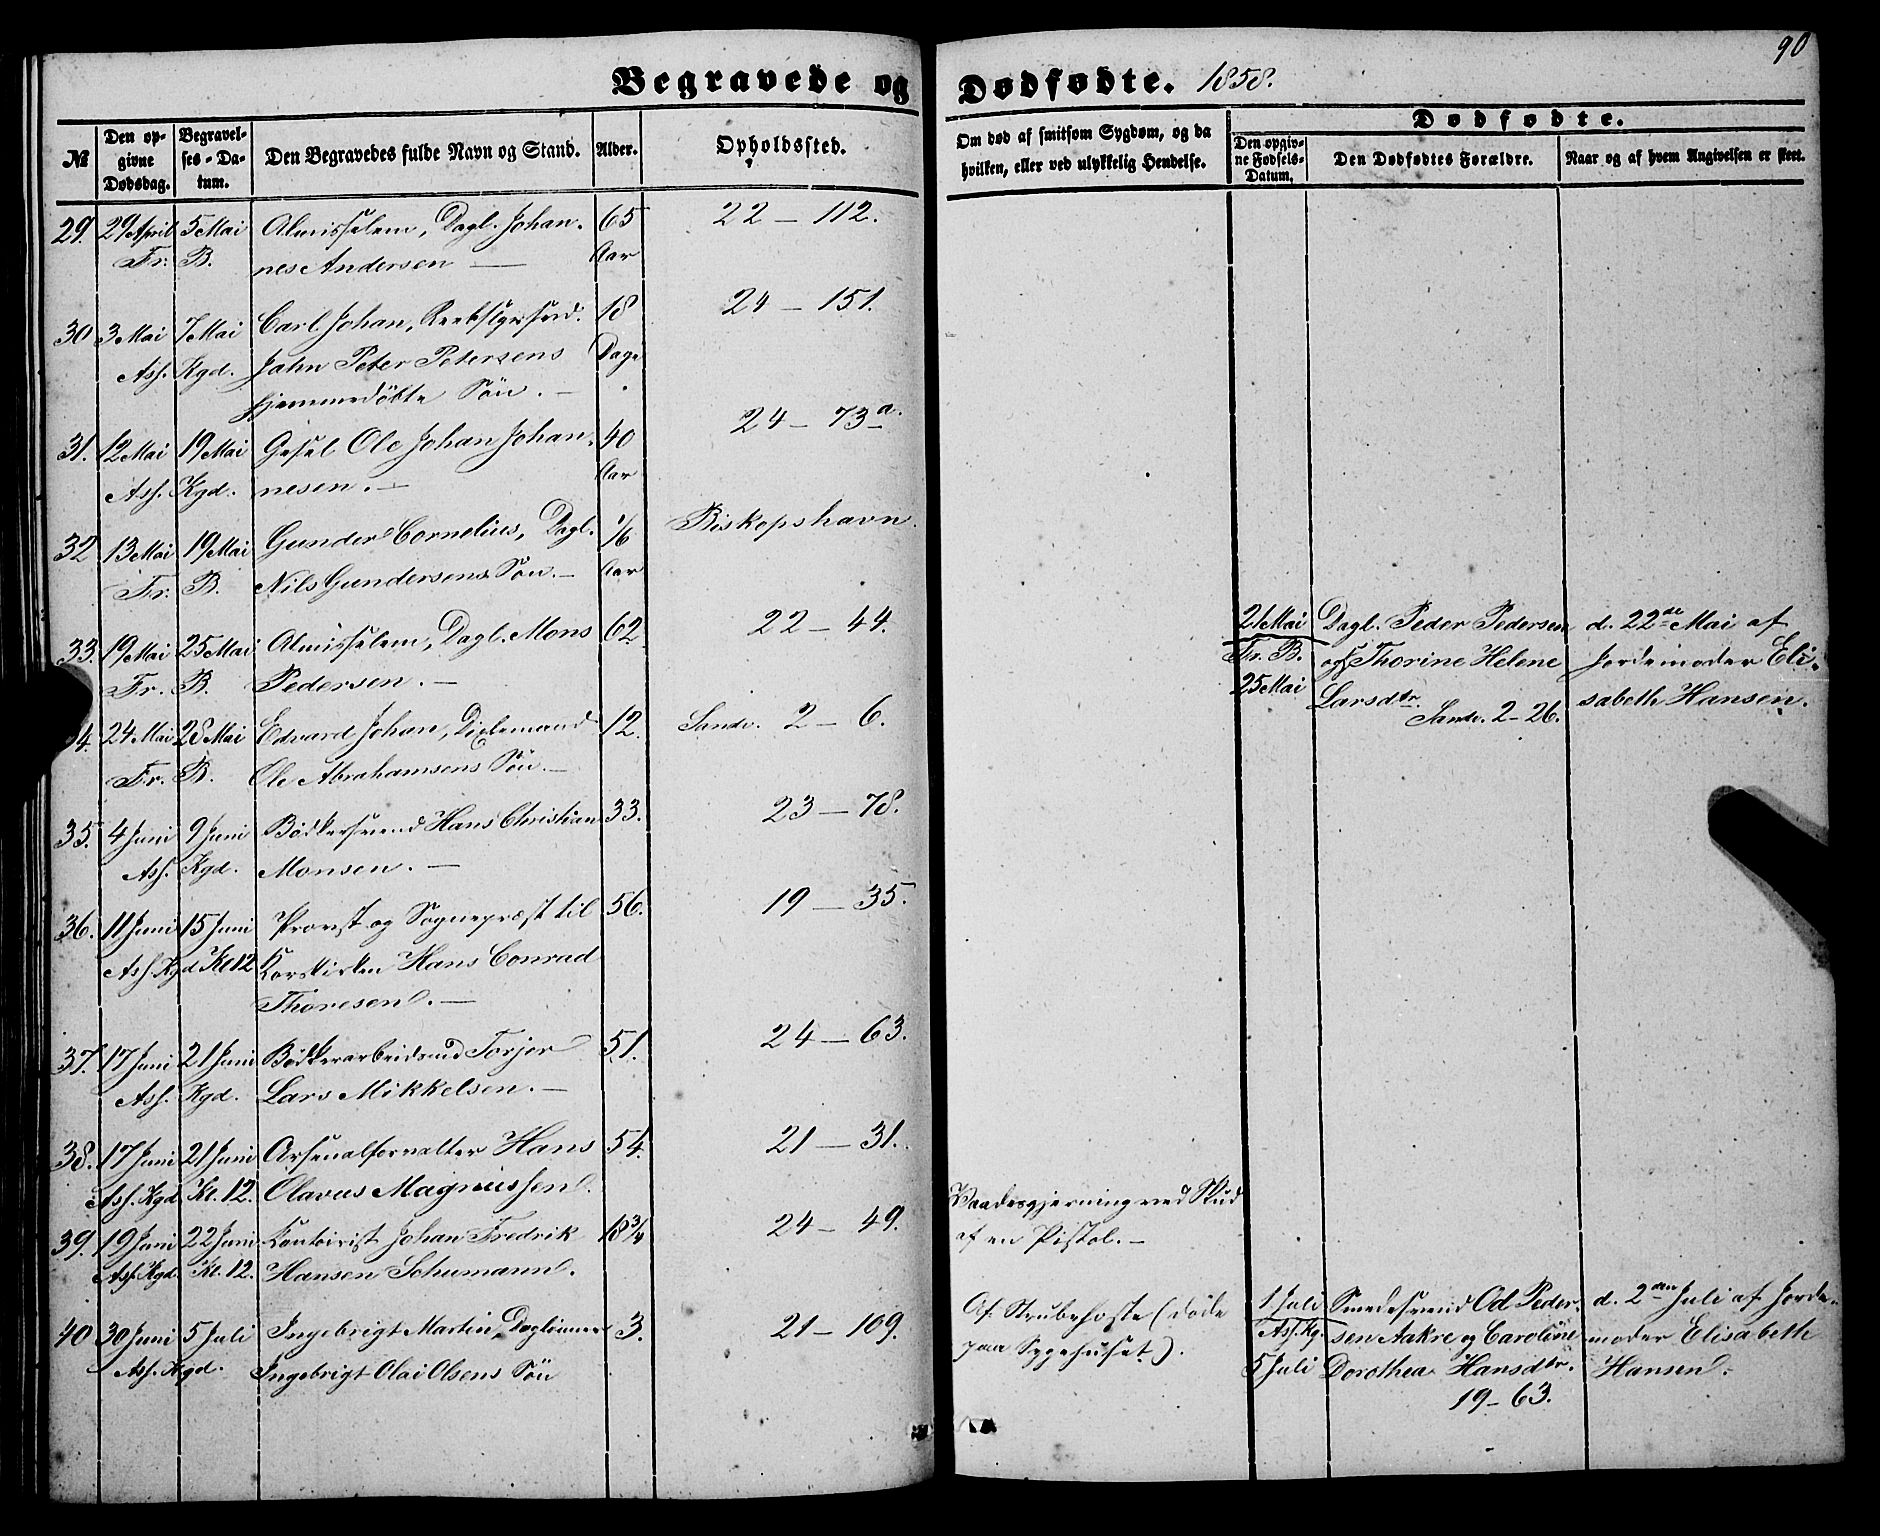 90
Begravede og Dødfødte. 1858.
№ | Den opgivne Dødsdag. | Begravelses-Datum. | Den Begravedes fulde Navn og Stand. | Alder. | Opholdssted. | Om død af smitsom Sygdom, og da hvilken, eller ved ulykkelig Hendelse. | Dødfødte.
Den opgivne Fødsels-Datum. | Den Dødfødtes Forældre. | Naar og af hvem Angivelsen er skeet.
29. 29 April 5 Mai Almisselem, Dagl. Johan- 65 22 – 112.
Fr. B. nes Andersen — Aar
30 3 Mai 7 Mai Carl Johan, 18 24 – 151.
Ass. Kgd. Jahn Peter Petersens Dage
hjemmedöbte Sön. —
31. 12 Mai 19 Mai Gesel Ole Johan Johan- 40 24 – 73 a.
Ass. Kgd. nesen. — Aar
32 13 Mai 19 Mai Gunder Cornelius, Dagl. 1/6 Biskopshavn.
Fr. B. Nils Gundersens Sön. — Aar
33. 19 Mai 25 Mai Almisselem, Dagl. Mons 62. 22 – 44.
Fr. B. Pedersen. —
21 Mai Dagl. Peder Pedersen d. 22de Mai af
Fr. B. og Thorine Helene Jordemoder Eli-
25 Mai Larsdtr. Sandv. 2 – 26. sabeth Hansen.
4. 24 Mai 28 Mai Edvard Johan, Dixlemand 12. Sandv. 2 – 6.
Fr. B. Ole Abrahamsens Sön. —
35. 4 Juni 9 Juni Bödkersvend Hans Christian 33. 23 – 78.
Ass. Kgd. Monsen. —
36. 11 Juni 15 Juni Provst og Sognepræst til 56. 19 – 35.
Ass. Kgd Kl 12 Korskirken Hans Conrad
Thoresen. —
37. 17 Juni 21 Juni Bödkerarbeidsmd Torjer 51. 24 – 63.
Ass. Kgd. Lars Mikkelsen. —
38. 17 Juni 21 Juni Arsenalforvalter Hans 54. 21 – 31.
Ass. Kgd Kl. 12. Olavus Magnussen.
39. 19 Juni 22 Juni Kontoirist Johan Fredrik 18 3/4 24 – 49. Vaadesgjerning ved Skud
Ass. Kgd. Kl. 12. Hansen Schumann. af en Pistol. —
40 30 Juni 5 Juli Ingebrigt Martin, Daglönner 3. 21 – 109. Af Strubehoste (döde
Ass. Kgd. Ingebrigt Olai Olsens Sön paa Sygehuset).
1 Juli Smedesvend Od Peder- d. 2den Juli af Jorde-
Ass. Kg. sen Aakre og Caroline moder Elisabeth
5 Juli Dorothea Hansdtr. Hansen.
19 – 63.